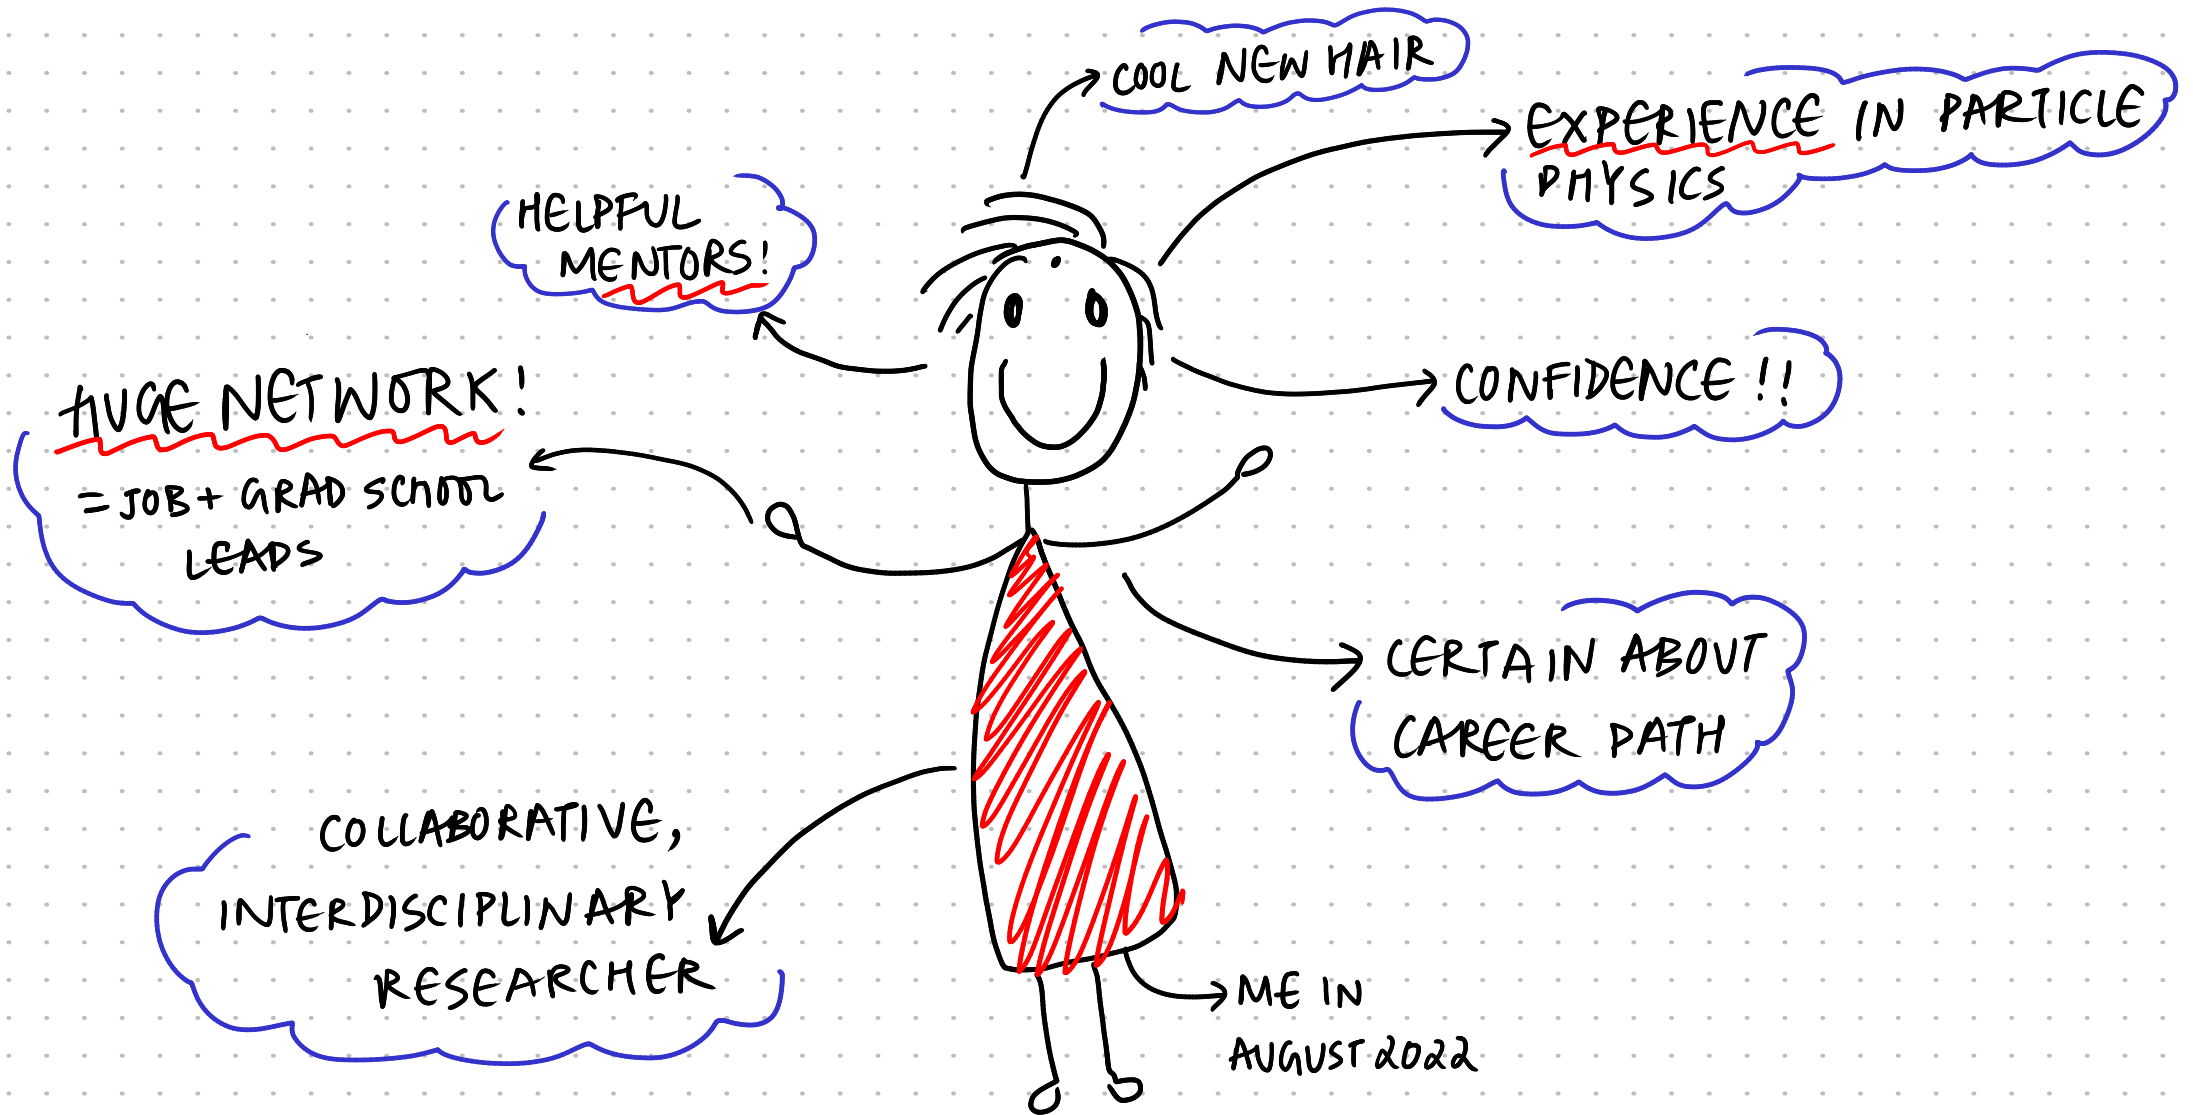 COOL NEW HAIR
EXPERIENCE IN PARTICLE
PHYSICS
HELPFUL
MENTORS!
CONFIDENCE!!
HUGE NETWORK!
= JOB + GRAD SCHOOL
LEADS
CERTAIN ABOUT
CAREER PATH
COLLABORATIVE,
INTERDISCIPLINARY
RESEARCHER
ME IN
AUGUST 2022